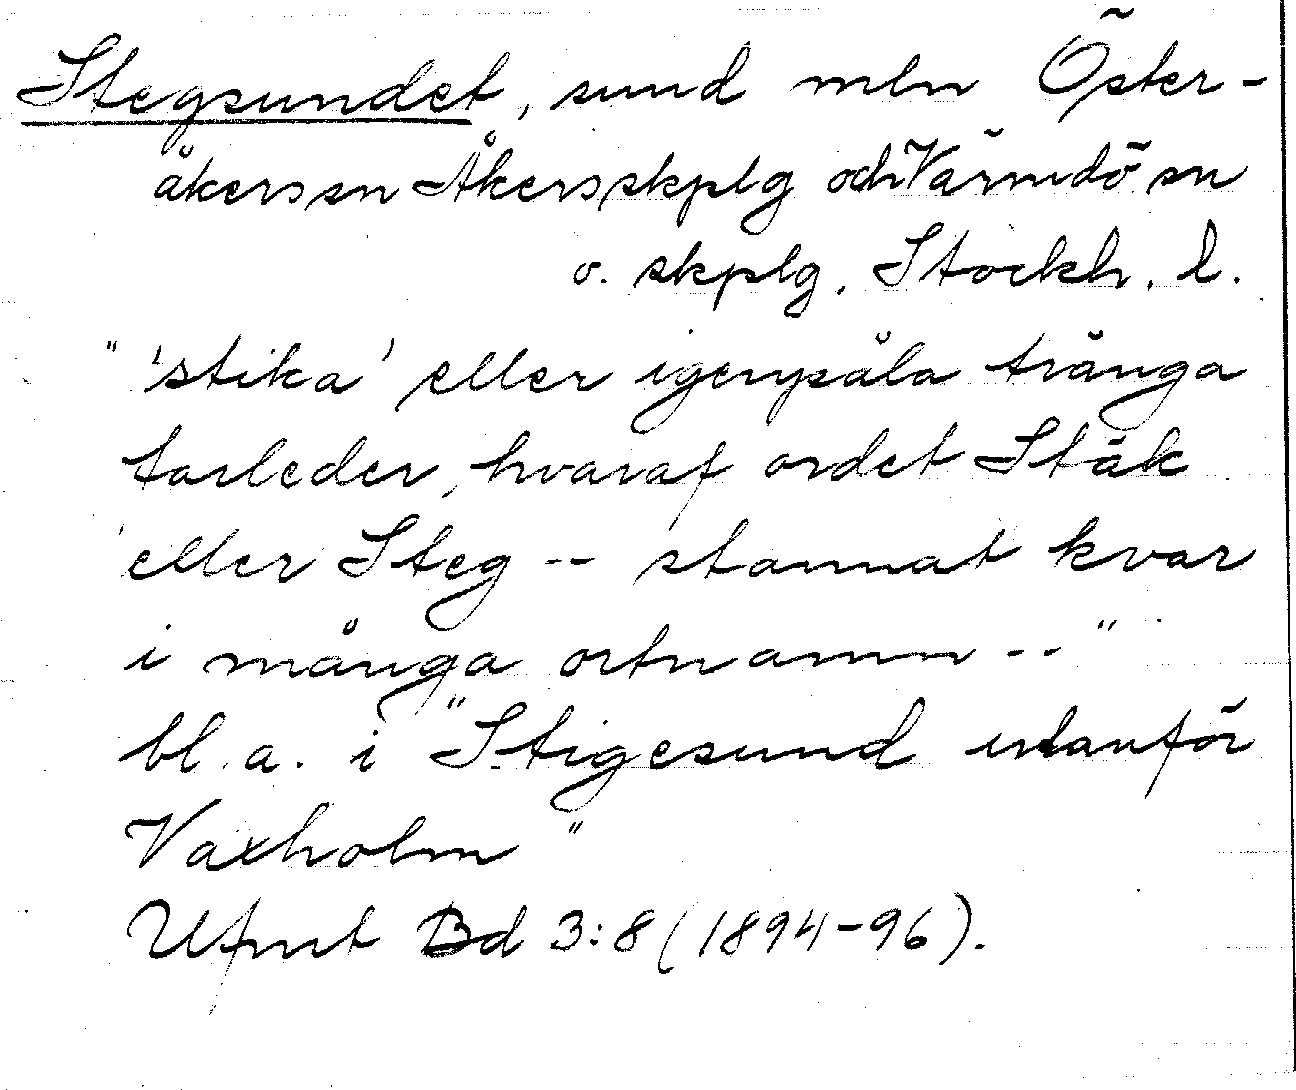 Stegsundet, sund mln Öster-
åkers sn Åkers skplg och Värmdö sn
o. skplg. Stockh. l.
" 'stika' eller igenpåla trånga
farleder, hvaraf ordet Stäk
eller Steg -- stannat kvar
i många ortnamn -- "
bl. a. i "Stigesund utanför
Vaxholm"
Ufmt Bd 3:8 (1894-96).